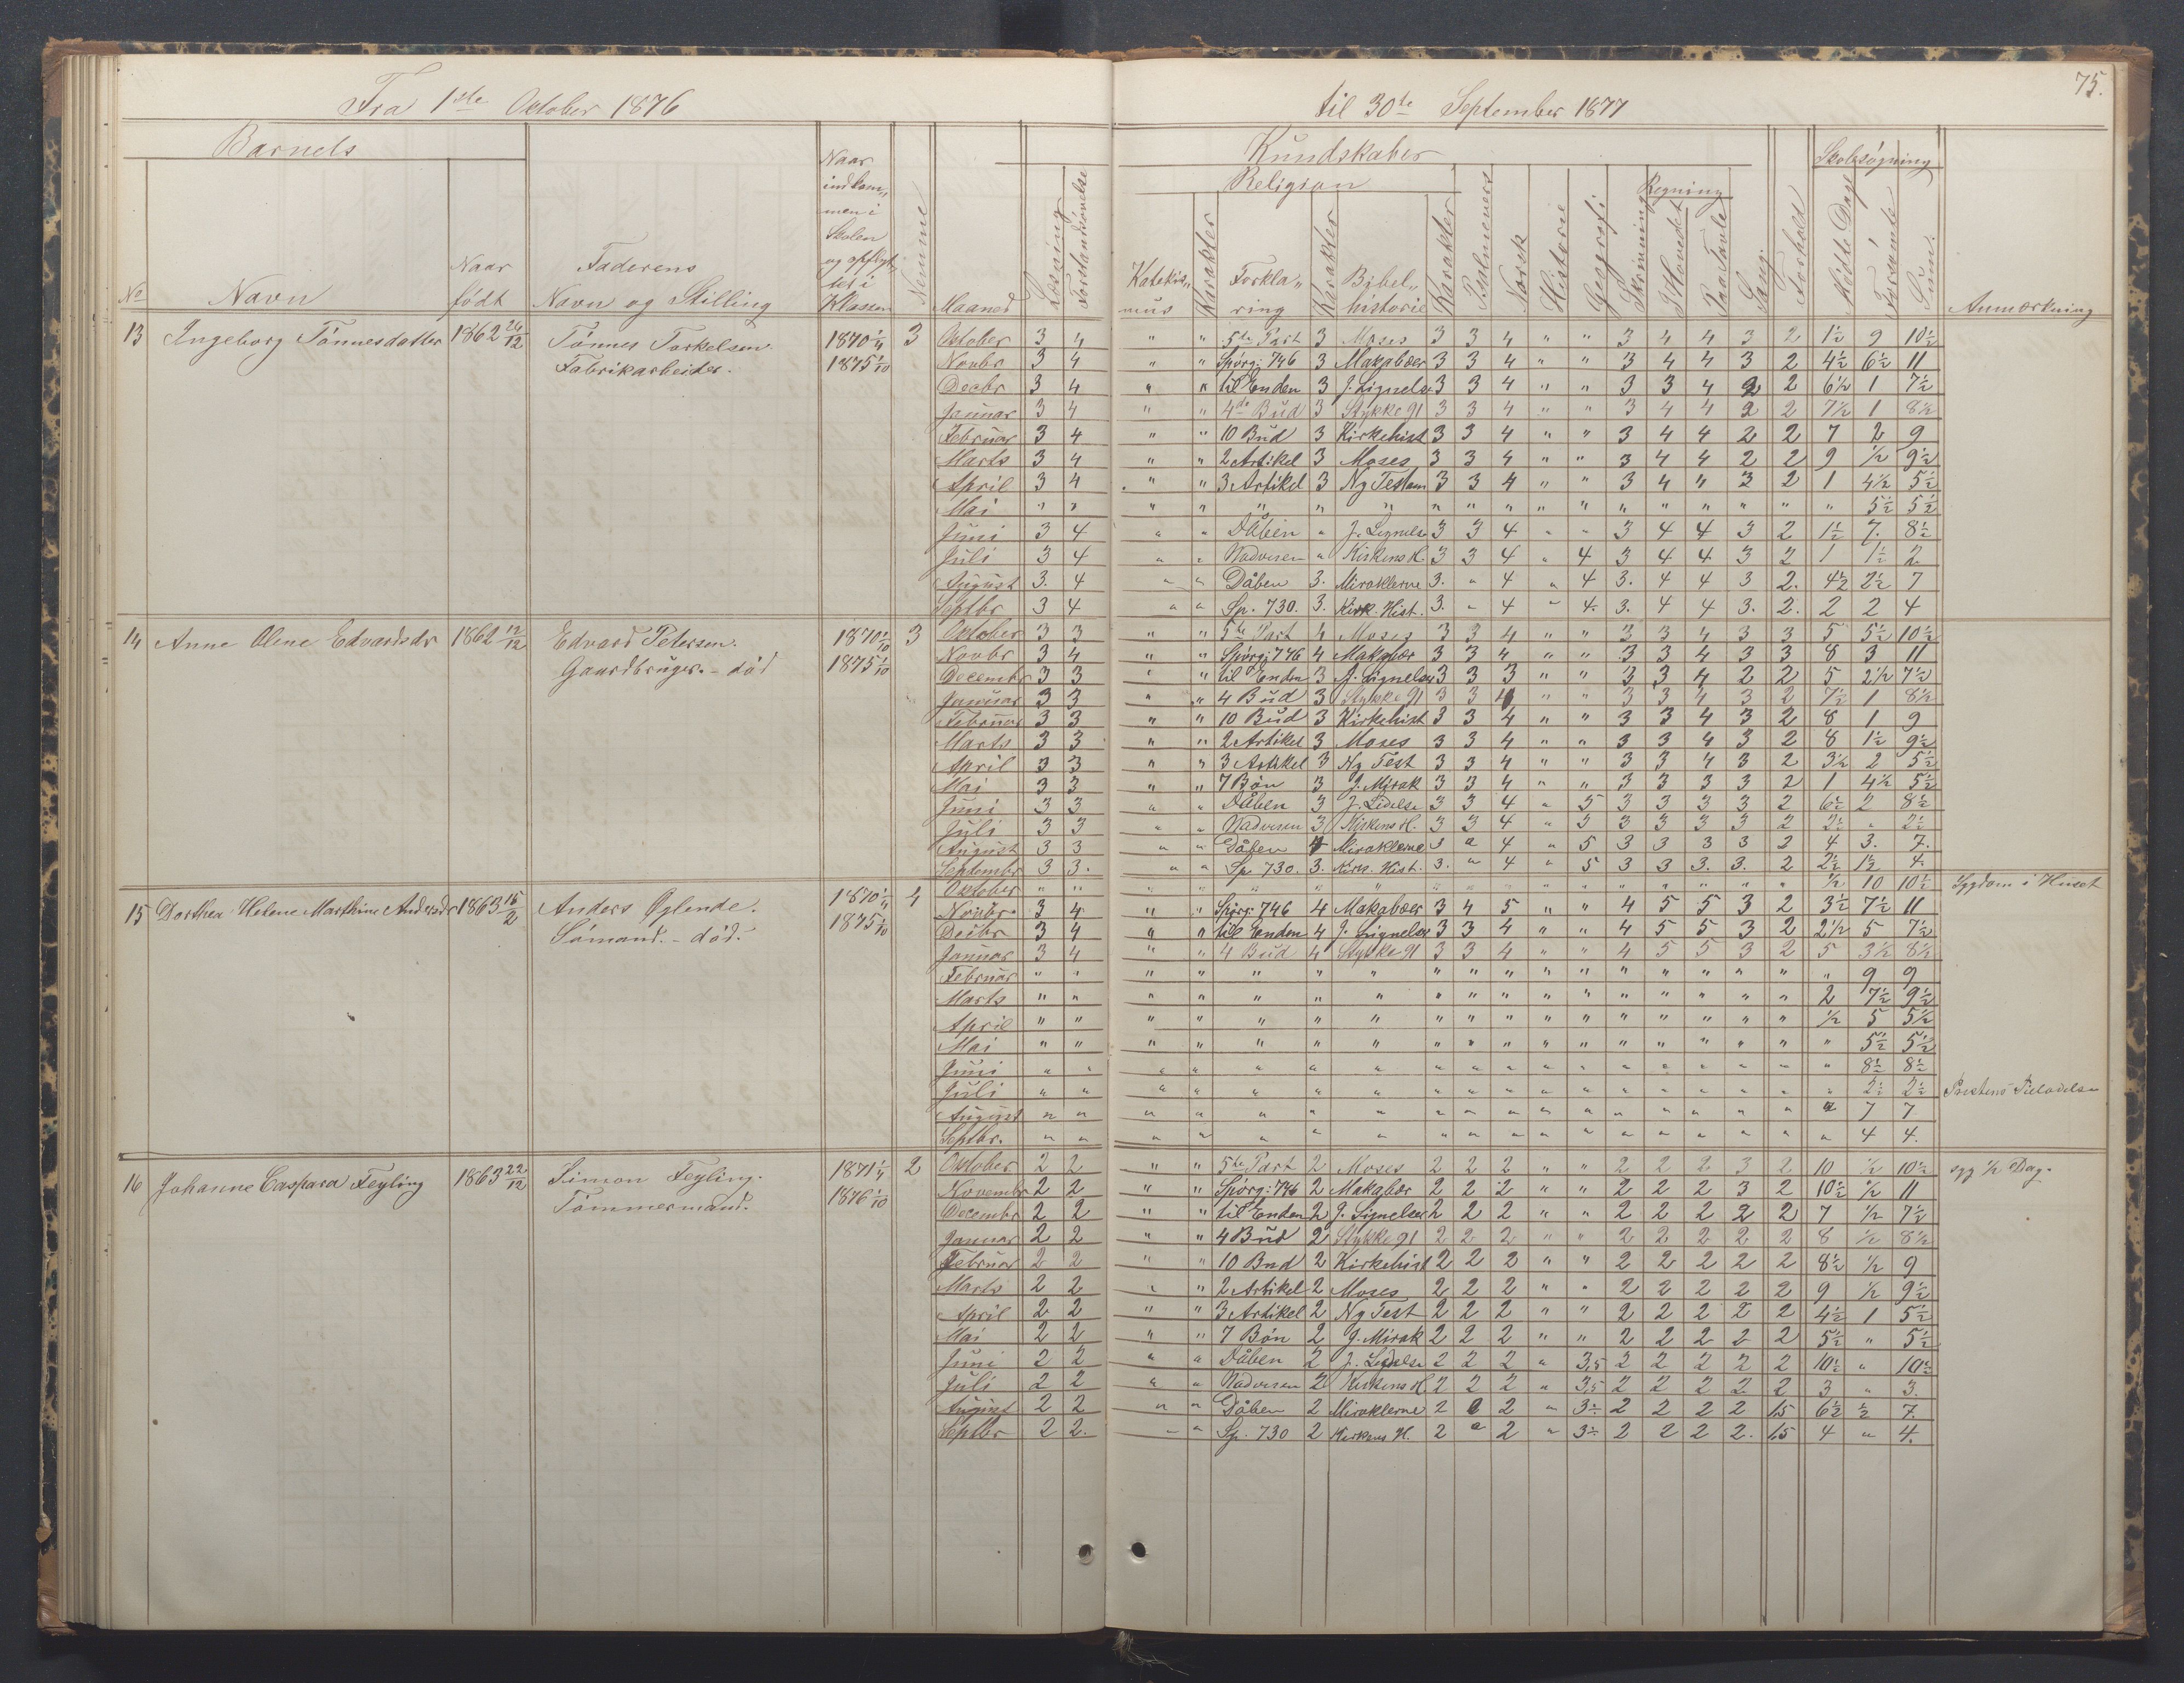 75.
Fra 1ste October 1876 til 30te September 1877
Barnets Kundskaber Skolesøgning
Religion Regning
No Navn Naar født Faderens Navn og Stilling Naar indkommen i Skolen og opflyttet i Klassen Nemme Maaned Læsning Forstandsøvelse Katekismus Karakter Forklaring Karakter Bibelhistorie Karakter Psalmevers Norsk Historie Geografi Skrivning I Hovedet Paa Tavle Sang Forhold Mødte Dage Forsømte Sum Anmærkning
13 Ingeborg Tönnesdatter 1862 24/12 Tönnes Torkelsen. 1870 1/4 3 October 3 4 " " 5te Part 3 Moses 3 3 4 " " 3 4 4 3 2 1½ 9 10½
Fabrikarbeider. 1875 1/10 Novbr 3 4 " " Spörg: 746 3 Makabæer 3 3 4 " " 3 4 4 3 2 4½ 6½ 11
Decbr 3 4 " " til Enden 3 J. Lignelse 3 3 4 " " 3 3 4 2 2 6½ 1 7½
Januar 3 4 " " 4de Bud 3 Stykke 91 3 3 4 " " 3 4 4 2 2 7½ 1 8½
Februar 3 4 " " 10 Bud 3 Kirkehist 3 3 4 " " 3 4 4 2 2 7 2 9
Marts 3 4 " " 2 Artikel 3 Moses 3 3 4 " " 3 4 4 2 2 9 ½ 9½
April 3 4 " " 3 Artikel 3 Ny Testam 3 3 4 " " 3 4 " 3 2 1 4½ 5½
Mai " " " " " " " " " " " " " " " " " " 5½ 5½
Juni 3 4 " " Dåben " J. Lignelse 3 3 4 " " 3 4 4 3 2 1½ 7. 8½
Juli 3 4 " " Nadveren " Kirkens H. 3 3 4 " 4 3 4 4 3 2 1 1½ 2
August 3. 4 " " Dåben 3. Miraklerne 3. " 4 " 4 3. 4 4 3 2. 4½ 2½ 7
Septbr 3 4 " " Sp. 730. 3. Kirk. Hist. 3. " 4 " 4. 3. 4 4 3. 2. 2 2 4
14 Anne Oline Edvardsdr 1862 12/12 Edvard Petersen. 1870 1/10 3 Oktober 3 3 " " 5te Part 4 Moses 3 3 4 " " 3 3 4 3 3 5 5½ 10½
Gaardbruger. - död 1875 1/10 Novbr 3 4 " " Spörg: 746 4 Makabær 3 3 4 " " 3 3 4 3 3 8 3 11
Decembr 3 3 " " til Enden 3 J. Lignelse 3 3 3 " " 3 3 4 2 2 5 2½ 7½
Januar 3 3 " " 4 Bud 3 Stykke 91 3 3 4 " " 3 3 4 3 2 7½ 1 8½
Februar 3 3 " " 10 Bud 3 Kirkehist 3 3 4 " " 3 3 4 3 2 8 1 9
Marts 3 3 " " 2 Artikel 3 Moses 3 3 4 " " 3 3 4 3 2 8 1½ 9½
April 3 3 " " 3 Artikel 3 Ny Test 3 3 4 " " 3 3 4 3 2 3½ 2 5½
Mai 3 3 " " 7 Bön 3 J. Mirak 3 3 4 " " 3 3 3 3 2 1 4½ 5½
Juni 3 3 " " Dåben 3 J. Lidelse 3 3 4 " 5 3 3 3 3 2 6½ 2 8½
Juli 3 3 " " Nadveren 3 Kirkens H. 3 3 4 " 5 3 3 3 3 2 2½ " 2½
August 3 3 " " Dåben 4 Miraklerne 3 " 4 " 5 3 3 3 3 2 4 3. 7.
Septembr 3 3. " " Sp 730. 3. Kirk. Hist. 3. " 4 " 5 3 3 3. 3. 2 2½ 1½ 4.
15 Dorthea Helene Marthine Andersdr 1863 15/2 Anders Øglende. 1870 1/4 4 Oktober " " " " " " " " " " " " " " " " " ½ 10 10½ Sygdom i Huset
Sömand. - död. 1875 1/10 Novbr. 3 4 " " Spörg: 746 4 Makabæer 3 4 5 " " 4 5 5 3 2 3½ 7½ 11
Decbr 3 4 " " til Enden 4 J. Lignelse 3 3 4 " " 4 5 5 3 2 2½ 5 7½
Januar 3 4 " " 4 Bud 4 Stykke 91 3 3 4 " " 4 5 5 3 2 5 3½ 8½
Februar " " " " " " " " " " " " " " " " " " 9 9
Marts " " " " " " " " " " " " " " " " " 2 7½ 9½
April " " " " " " " " " " " " " " " " " ½ 5 5½
Mai " " " " " " " " " " " " " " " " " " 5½ 5½
Juni " " " " " " " " " " " " " " " " " " 8½ 8½
Juli " " " " " " " " " " " " " " " " " " 2½ 2½ Prestens Tilladelse
August " " " " " " " " " " " " " " " " " " 7 7
Septbr. " " " " " " " " " " " " " " " " " " 4 4.
16 Johanne Caspara Feyling 1863 22/12 Simon Feyling. 1871 1/4 2 Oktober 2 2 " " 5te Part 2 Moses 2 2 2 " " 2 2 2 3 2 10 ½ 10½ syg ½ Dag.
Tömmermand. 1876 1/10 Novembr 2 2 " " Spörg: 746 2 Makabær 2 2 2 " " 2 2 2 3 2 10½ ½ 11
Decembr 2 2 " " til Enden 2 J. Lignelse 2 2 2 " " 2 2 2 2 2 7 ½ 7½
Januar 2 2 " " 4 Bud 2 Stykke 91 2 2 2 " " 2 2 2 2 2 8 ½ 8½
Februar 2 2 " " 10 Bud 2 Kirkehist 2 2 2 " " 2 2 2 2 2 8½ ½ 9
Marts 2 2 " " 2 Artikel 2 Moses 2 2 2 " " 2 2 2 2 2 9 ½ 9½
April 2 2 " " 3 Artikel 2 Ny Test 2 2 2 " " 2 2 2 2 2 4½ 1 5½
Mai 2 2 " " 7 Bön 2 J. Mirak 2 2 2 " " 2 2 2 2 2 5½ " 5½
Juni 2 2 " " Dåben 2 J. Lidelse 2 2 2 " 3,5 2 2 2 2 2 10½ " 10½
Juli 2 2 " " Nadveren 2 Kirkens H. 2 2 2 " 3,5 2 2 2 2 2 3 " 3.
August 2 2 " " Dåben 2 Miraklerne 2 " 2 " 3½ 2 2 2 2 1,5 6½ ½ 7.
Septbr 2 2. " " Sp. 730 2 Kirkens H. 2 " 2 " 3½ 2 2 2 2. 1,5 4 " 4.